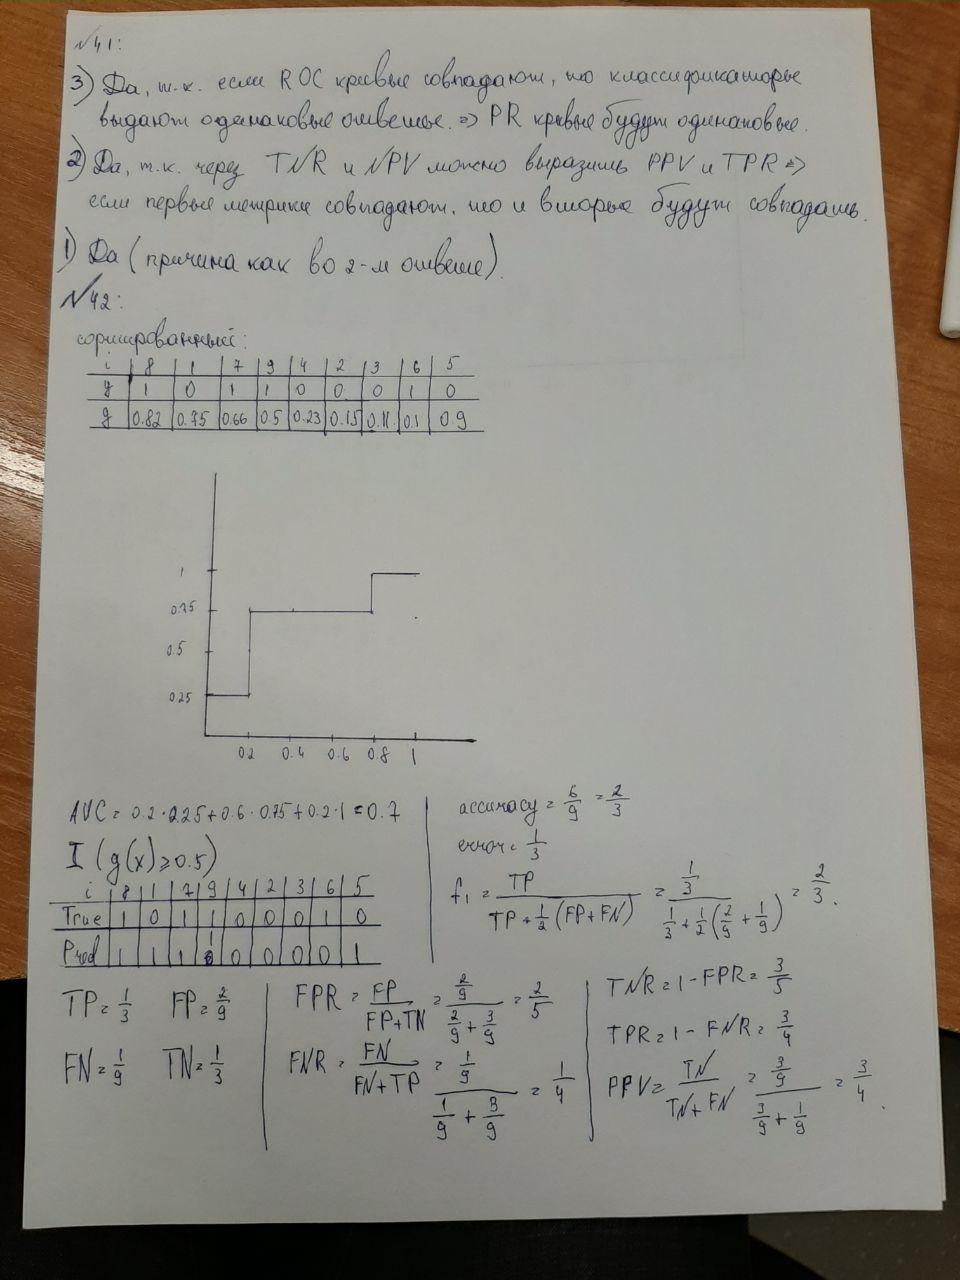 №41:
3) Да, т.к. если ROC кривые совпадают, то классификаторы
выдают одинаковые ответы. => PR кривые будут одинаковые.
2) Да, т.к. через TNR и NPV можно выразить PPV и TPR =>
если первые метрики совпадают, то и вторые будут совпадать.
1) Да (причина как во 2-м ответе).
№42:
сортированный:
i 8 1 7 9 4 2 3 6 5
y 1 0 1 1 0 0 0 1 0
g 0.82 0.75 0.66 0.5 0.23 0.15 0.11 0.1 0.9
1
0.75
0.5
0.25
0.2 0.4 0.6 0.8 1
AUC = 0.2·0.25+0.6·0.75+0.2·1=0.7
I (g(x)≥0.5)
i 8 1 7 9 4 2 3 6 5
True 1 0 1 1 0 0 0 1 0
Pred 1 1 1 1 0 0 0 0 1
accuracy = 6/9 = 2/3
error = 1/3
f1 = TP / (TP + 1/2 (FP+FN)) = 1/3 / (1/3 + 1/2 (2/9 + 1/9)) = 2/3.
TP = 1/3 FP = 2/9
FN = 1/9 TN = 1/3
FPR = FP / (FP+TN) = 2/9 / (2/9 + 3/9) = 2/5
FNR = FN / (FN+TP) = 1/9 / (1/9 + 3/9) = 1/4
TNR = 1 - FPR = 3/5
TPR = 1 - FNR = 3/4
PPV = TN / (TN+FN) = 3/9 / (3/9 + 1/9) = 3/4.